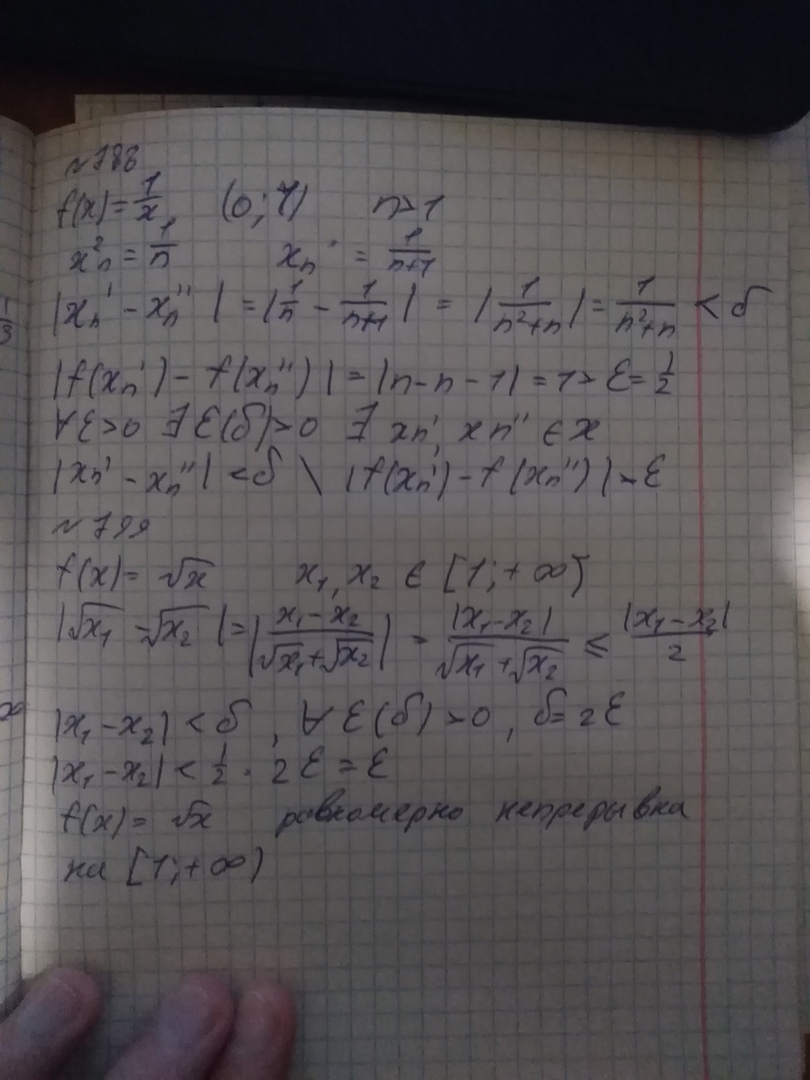 № 788
f(x) = 1/x (0; 1) n > 1
x²n = 1/n xn = 1/(n+1)
|xn' - xn''| = |1/n - 1/(n+1)| = |1/(n²+n)| = 1/(n²+n) < δ
|f(xn') - f(xn'')| = |n - n - 1| = 1 > ε = 1/2
∀ε>0 ∃ ε(δ)>0 ∃ xn', xn'' ∈ X
|xn' - xn''| < δ \ |f(xn') - f(xn'')| > ε
№ 799
f(x) = √x x₁, x₂ ∈ [1; +∞)
|√x₁ - √x₂| = |(x₁ - x₂)/(√x₁ + √x₂)| = |x₁ - x₂|/(√x₁ + √x₂) ≤ |x₁ - x₂|/2
|x₁ - x₂| < δ, ∀ ε(δ) > 0, δ = 2ε
|x₁ - x₂| < 1/2 · 2ε = ε
f(x) = √x равномерно непрерывна
на [1; +∞)